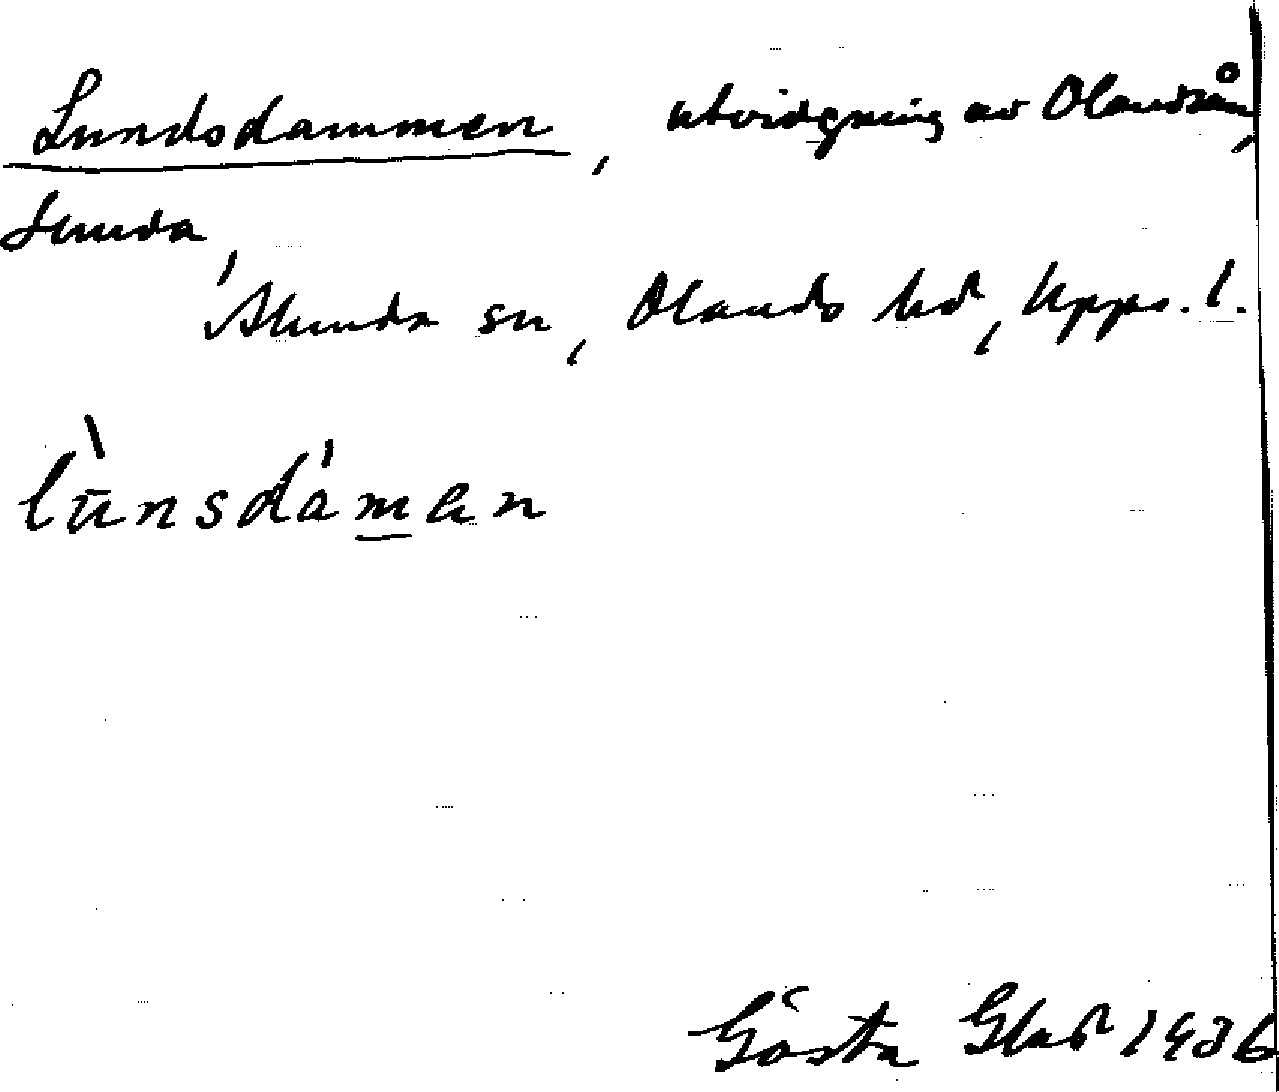 Lundsdammen, utvidgning av Olandsån,
Sunda,
Alunda sn, Olands hd, Upps. l.
lùnsdámen
Gösta Glad 1936